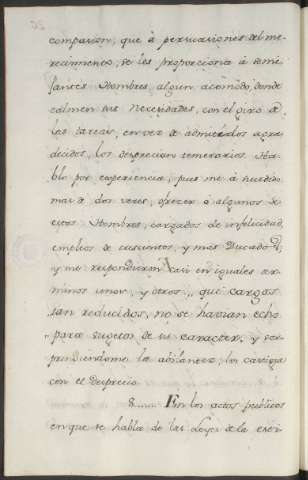 compasion, que à persuaciones del me-
recimiento, se les proporciona à seme-
jantes Hombres, algun acomodo, donde
calmen sus Necesidades, con el giro de
las tareas, en vez de admitirlos agra-
decidos, los desprecian temerarios. Ha-
blo por experiencia, pues me à sucedido
mas de dos veces, ofrecer à algunos de
estos Hombres, cargados de infelicidad,
empleos de trescientos, y mas Ducados,
y me respondieron casi en iguales ter-
minos unos, y otros, que cargos
tan reducidos, no se havian echo
para sugetos de su caracter, y sor-
prendiendome la advertencia, los castigue
con el desprecio.
8...... En los actos publicos
en que se habla de las Leyes de la escri-